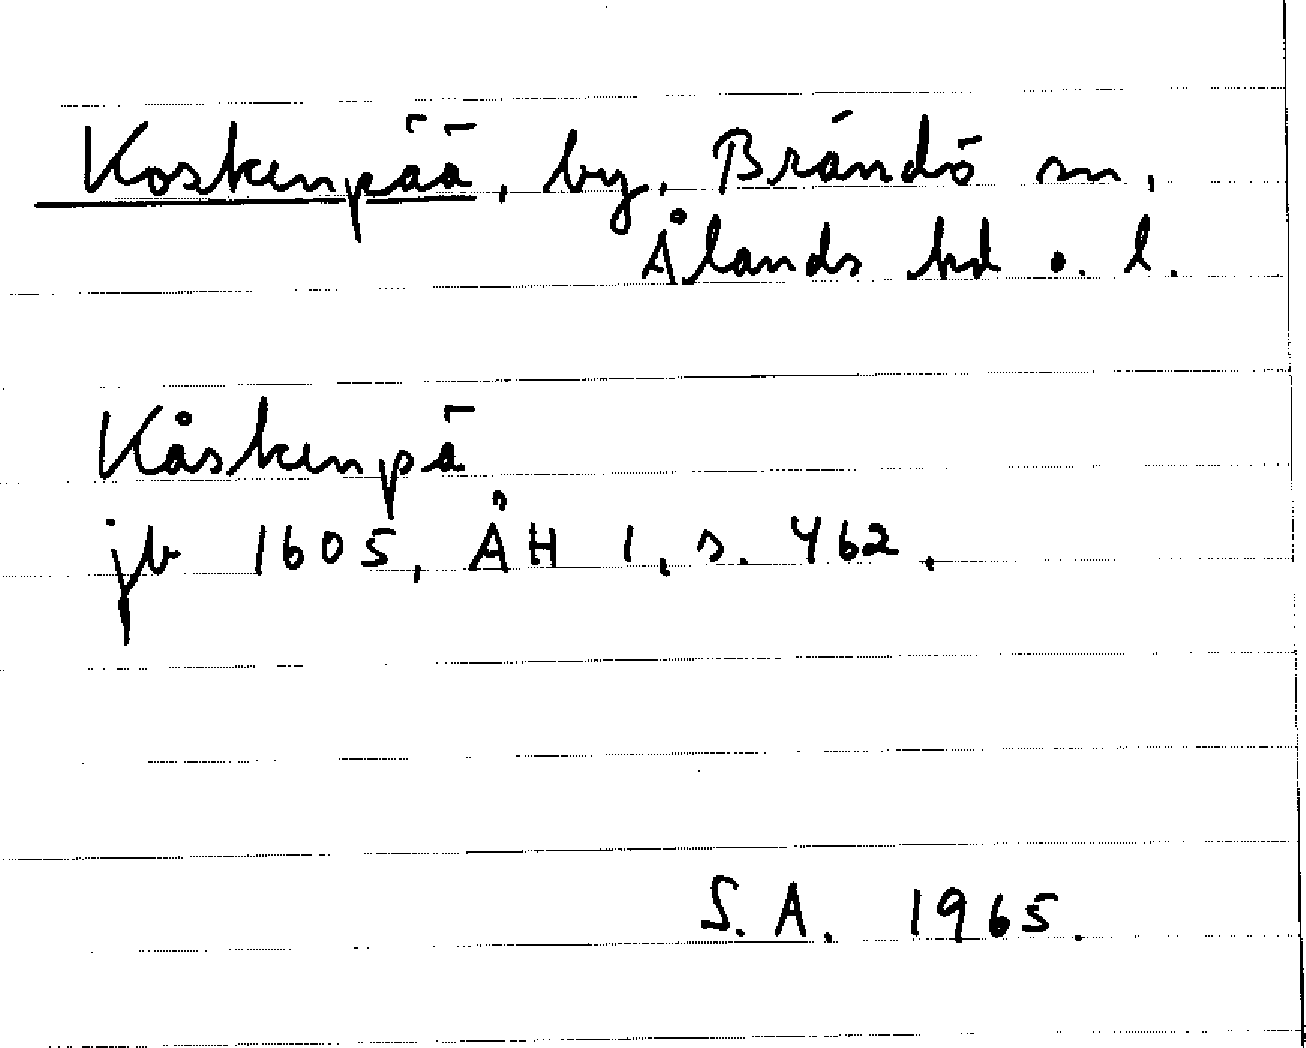 Koskenpää, by, Brändö sn,
Ålands hd o. l.
Kåskenpä
jb 1605, ÅH 1, s. 462.
S. A. 1965.